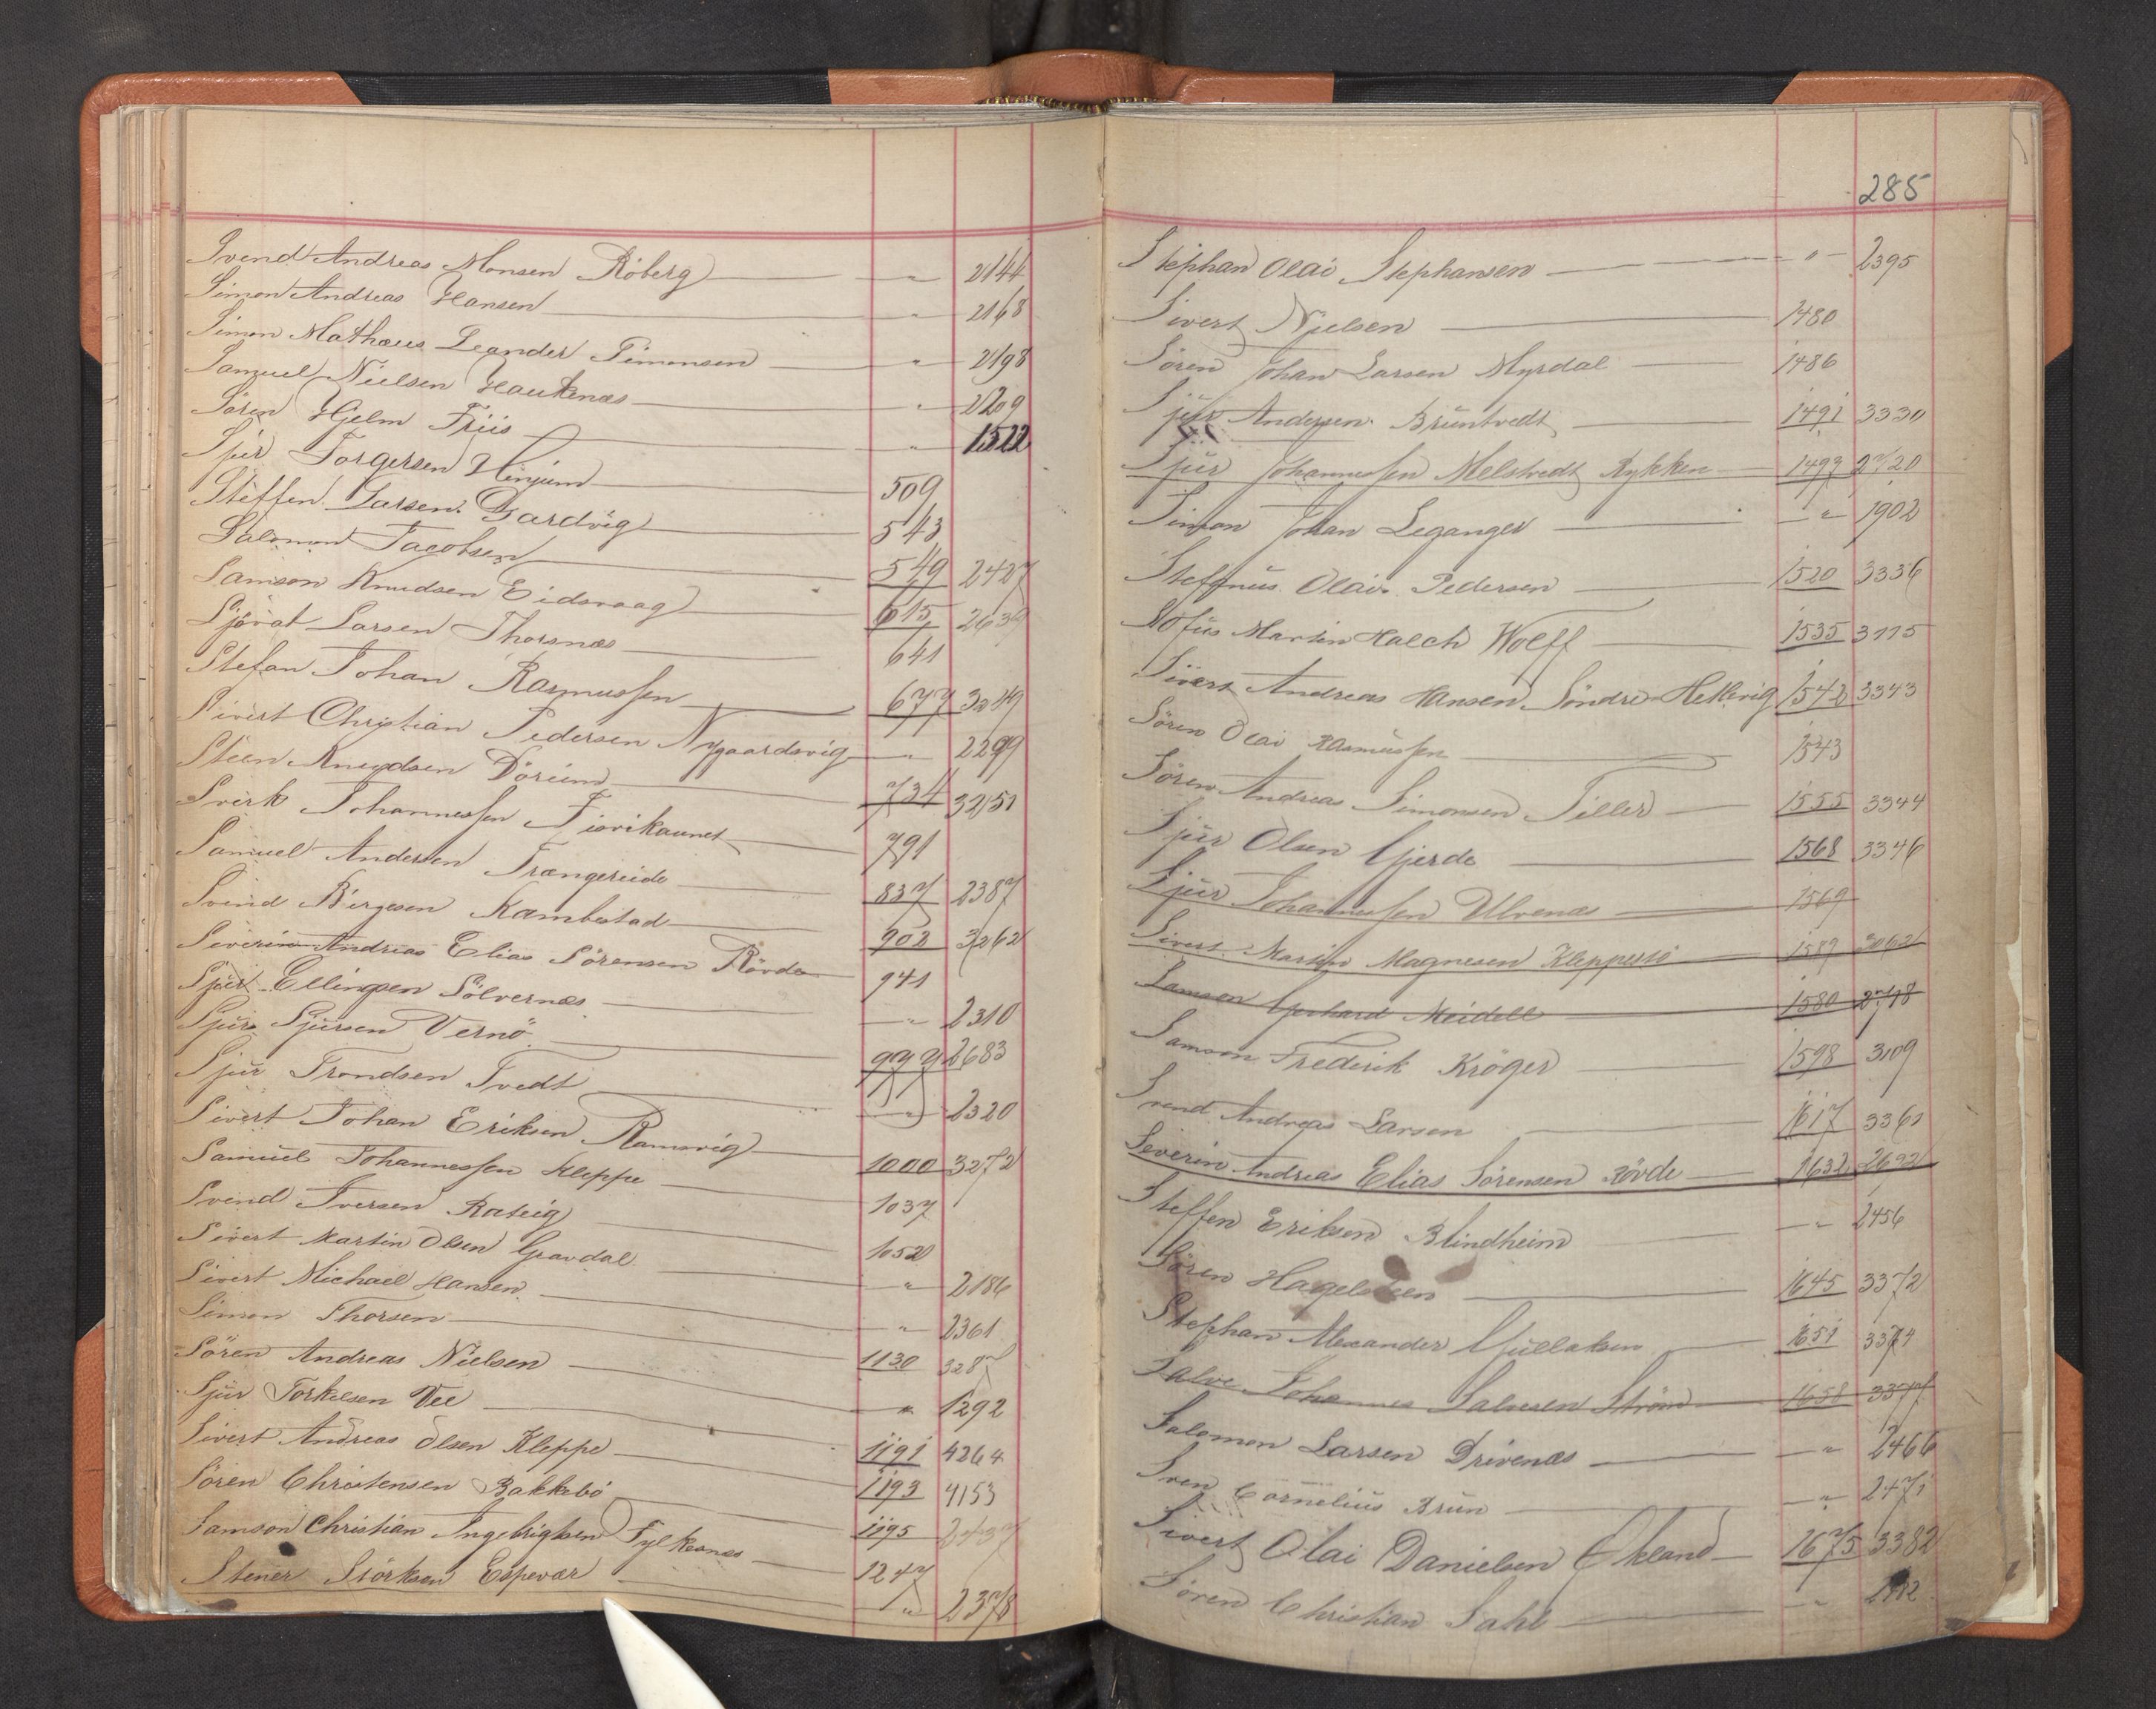 Svend Andreas Monsen Röberg " 2144
Simon Andreas Hansen " 2168
Simon Mathæus Leander Simonsen " 2198
Samuel Nielsen Haukenæs " 2209
Sören Hjelm Friis " 1522
Sjur Torgersen Hinjum 509
Steffen Larsen Gardvig 543
Salomon Jacobsen 549 2427
Samson Knudsen Eidsvaag 615 2639
Sjövat Larsen Thorsnæs 641
Stefan Johan Rasmussen 677 3249
Sivert Christian Pedersen Nygaardsvig " 2299
Steen Knudsen Dörum 734 3251
Sverk Johannessen 791
Samuel Andersen Trængereide 837 2387
Svend Birgesen Kambestad 902 3262
Severin Andreas Elias Sörensen Rövde 941
Sjur Ellingsen Sölvernæs " 2310
Sjur Sjursen Vernö 999 2683
Sjur Trondsen Tvedt " 2320
Sivert Johan Eriksen Ramsvig 1000 3272
Samuel Johannessen Kleppe 1037
Svend Iversen Rateig 1052
Sivert Martin Olsen Gravdal " 2186
Sivert Michael Hansen " 2361
Simon Thorsen 1130 3287
Sören Andreas Nielsen " 1292
Sjur Torkelsen Vee 1191 4264
Sivert Andreas Olsen Kleppe 1193 4153
Sören Christensen Bakkebö 1195 2437
Samson Christian Ingebrigtsen Fylkesnæs 1247
Stener Störksen Espevær " 2378
285
Stephan Olai Stephansen " 2395
Sivert Nielsen 1480
Sören Johan Larsen Myrdal 1486
Sjur Andersen Bruntvedt 1491 3330
Sjur Johannessen Melstvedt Rykken 1493 2720
Simon Johan Leganger " 1902
Steffnus Olai Pedersen 1520 3336
Martin Halch Wolff 1535 3115
Sivert Andreas Hansen Söndre Hellevig 1542 3343
Sören Olai Rasmussen 1543
Sören Andreas Simonsen Tiller 1555 3344
Sjur Olsen Gjerde 1568 3346
Sjur Johannessen Ulvenæs 1569
Sivert Martin Magnesen Kleppestö 1589 3062
Samson Gerhard Meidell 1580 2718
Samson Frederik Kröger 1598 3109
Svend Andreas Larsen 1617 3361
Severin Andreas Elias Sörensen Rövde 1632 2692
Steffen Eriksen Blindheim " 2456
Sören Hagelsteen 1645 3372
Stephan Alexander Gullaksen 1651 3374
Salve Johannes Salvesen Strönd 1658 3377
Salomon Larsen Drivenæs " 2466
Sven Cornelius Brun " 2471
Sivert Olai Danielsen Ekland 1675 3382
Sören Christian Dahl "